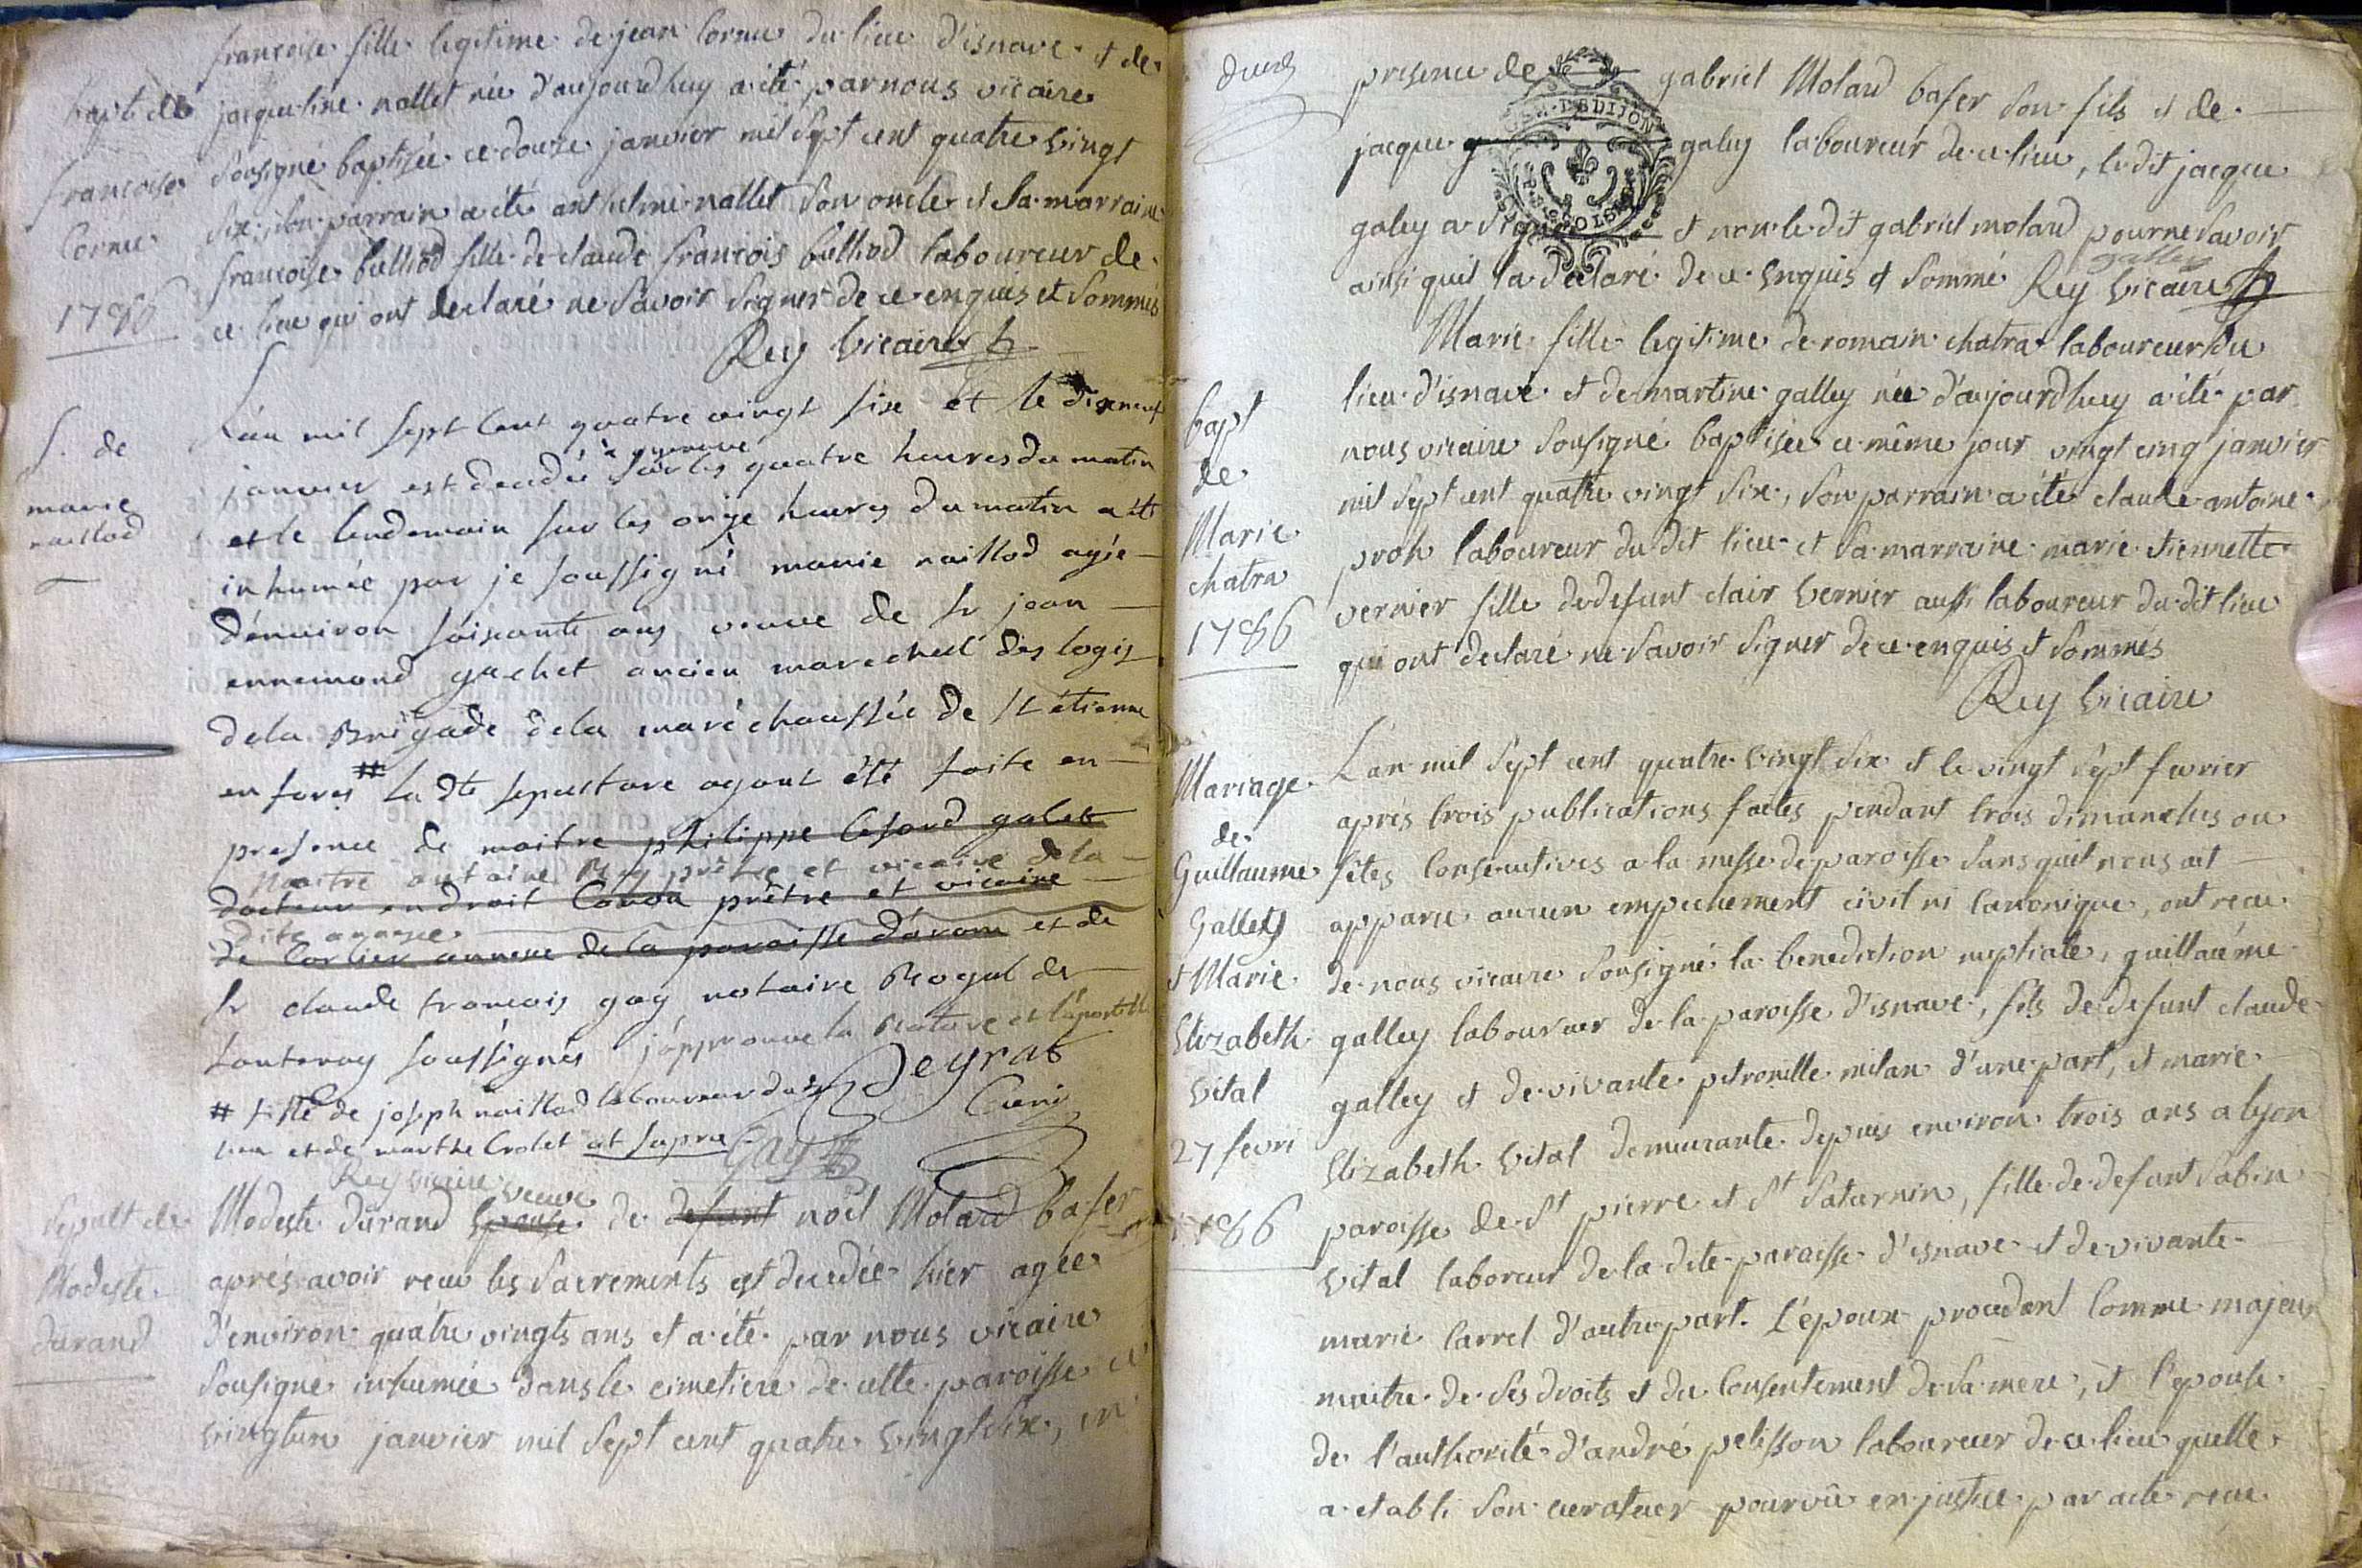 francoise fille legitime de jean Cornu du lieu d'isnave et de
bapt de jacqueline nallet née d'aujourdhuy a été par nous vicaire
francoise Sousigné baptisée ce douze janvier mil Sept cent quatre vingt
Cornu Six, son parrain a été anthelme nallet Son oncle et Sa marraine
francoise bulliod fille de claude francois bulliod laboureur de
1786 ce lieu qui ont declaré ne Savoir Signer de ce enquis et Sommés
Rey vicaire
L'an mil sept cent quatre vingt six et le dixneuf
S. de janvier est decedée à izenave sur les quatre heures du matin
marie et le lendemain sur les onze heures du matin a été
naillod inhumée par je soussigné marie naillod agée
d'environ soixante ans veuve de sr jean
ennemond gachet ancien marechal des logis
de la Brigade de la maréchaussée de st étienne
en forès # la dte sepulture ayant été faite en
presence de maitre philippe galet
maitre antoine Rey prêtre et vicaire de la
docteur en droit prêtre et vicaire
dite annexe
de Corlier annexe de la paroisse et de
sr claude francois gay notaire Royal de
soussignés j'approuve la Rature
# fille de joseph naillod laboureur du dt Deyrat
lieu et de marthe Crolet ut supra Curé
Rey vicaire Gay
veuve
Sepult de Modeste durand epouse de defunt noël Molard baser
Modeste après avoir reçu les Sacrements est decedée hier agée
durand d'environ quatre vingts ans et a été par nous vicaire
Sousigné inhumée dans le cimetiere de cette paroisse ce
vingtun janvier mil Sept cent quatre vingt Six, en
presence de gabriel Molard baser Son fils et de
jacque galey laboureur de ce lieu, le dit jacque
galey a Signé et non le dit gabriel molard pour ne Savoir
ainsi quil la declaré de ce enquis et Sommé galley Rey vicaire
Marie fille legitime de romain chatra laboureur du
lieu d'isnave et de martine galley née d'aujourdhuy a été par
bapt nous vicaire Sousigné baptisée ce même jour vingt cinq janvier
de mil Sept cent quatre vingt Six, Son parrain a été claude antoine
Marie proh laboureur du dit lieu et Sa marraine marie etiennette
chatra vernier fille de defunt clair vernier aussi laboureur du dit lieu
1786 qui ont declaré ne Savoir Signer de ce enquis et Sommés
Rey vicaire
L'an mil Sept cent quatre vingt Six et le vingt Sept fevrier
Mariage après trois publications faites pendant trois dimanches ou
de
Guillaume fêtes Consecutives a la messe de paroisse Sans quil nous ait
Galley apparu aucun empechement civil ni Canonique, ont reçu
et Marie de nous vicaire Sousigné la benediction nuptiale, guillaume
Elizabeth galley laboureur de la paroisse d'isnave, fils de defunt claude
Vital galley et de vivante petronille milan d'une part, et marie
27 fevri Elizabeth Vital demeurante depuis environ trois ans a lyon
1786 paroisse de St pierre et St Saturnin, fille de defunt Sabin
Vital laboreur de la dite paroisse d'isnave et de vivante
marie Carrel d'autre part. L'époux procedant Comme majeur
maitre de Ses droits et du Consentement de Sa mere, et l'epouse
de l'authorité d'andré pelisson laboureur de ce lieu quelle
a etabli Son curateur pourvû en justice par acte reçu